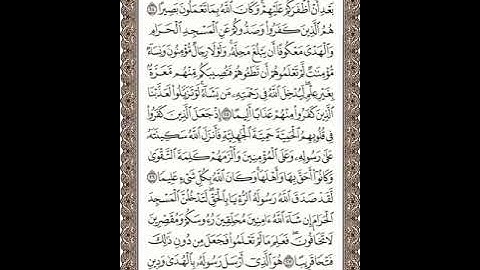 بَعْدِ أَنْ أَظْفَرَكُمْ عَلَيْهِمْ ۚ وَكَانَ ٱللَّهُ بِمَا تَعْمَلُونَ بَصِيرًا ٢٤
هُمُ ٱلَّذِينَ كَفَرُوا۟ وَصَدُّوكُمْ عَنِ ٱلْمَسْجِدِ ٱلْحَرَامِ
وَٱلْهَدْىَ مَعْكُوفًا أَن يَبْلُغَ مَحِلَّهُۥ ۚ وَلَوْلَا رِجَالٌ مُّؤْمِنُونَ وَنِسَآءٌ
مُّؤْمِنَـٰتٌ لَّمْ تَعْلَمُوهُمْ أَن تَطَـُٔوهُمْ فَتُصِيبَكُم مِّنْهُم مَّعَرَّةٌۢ
بِغَيْرِ عِلْمٍ ۖ لِّيُدْخِلَ ٱللَّهُ فِى رَحْمَتِهِۦ مَن يَشَآءُ ۚ لَوْ تَزَيَّلُوا۟ لَعَذَّبْنَا
ٱلَّذِينَ كَفَرُوا۟ مِنْهُمْ عَذَابًا أَلِيمًا ٢٥ إِذْ جَعَلَ ٱلَّذِينَ كَفَرُوا۟
فِى قُلُوبِهِمُ ٱلْحَمِيَّةَ حَمِيَّةَ ٱلْجَـٰهِلِيَّةِ فَأَنزَلَ ٱللَّهُ سَكِينَتَهُۥ
عَلَىٰ رَسُولِهِۦ وَعَلَى ٱلْمُؤْمِنِينَ وَأَلْزَمَهُمْ كَلِمَةَ ٱلتَّقْوَىٰ
وَكَانُوٓا۟ أَحَقَّ بِهَا وَأَهْلَهَا ۚ وَكَانَ ٱللَّهُ بِكُلِّ شَىْءٍ عَلِيمًا ٢٦
لَّقَدْ صَدَقَ ٱللَّهُ رَسُولَهُ ٱلرُّءْيَا بِٱلْحَقِّ ۖ لَتَدْخُلُنَّ ٱلْمَسْجِدَ
ٱلْحَرَامَ إِن شَآءَ ٱللَّهُ ءَامِنِينَ مُحَلِّقِينَ رُءُوسَكُمْ وَمُقَصِّرِينَ
لَا تَخَافُونَ ۖ فَعَلِمَ مَا لَمْ تَعْلَمُوا۟ فَجَعَلَ مِن دُونِ ذَٰلِكَ
فَتْحًا قَرِيبًا ٢٧ هُوَ ٱلَّذِىٓ أَرْسَلَ رَسُولَهُۥ بِٱلْهُدَىٰ وَدِينِ